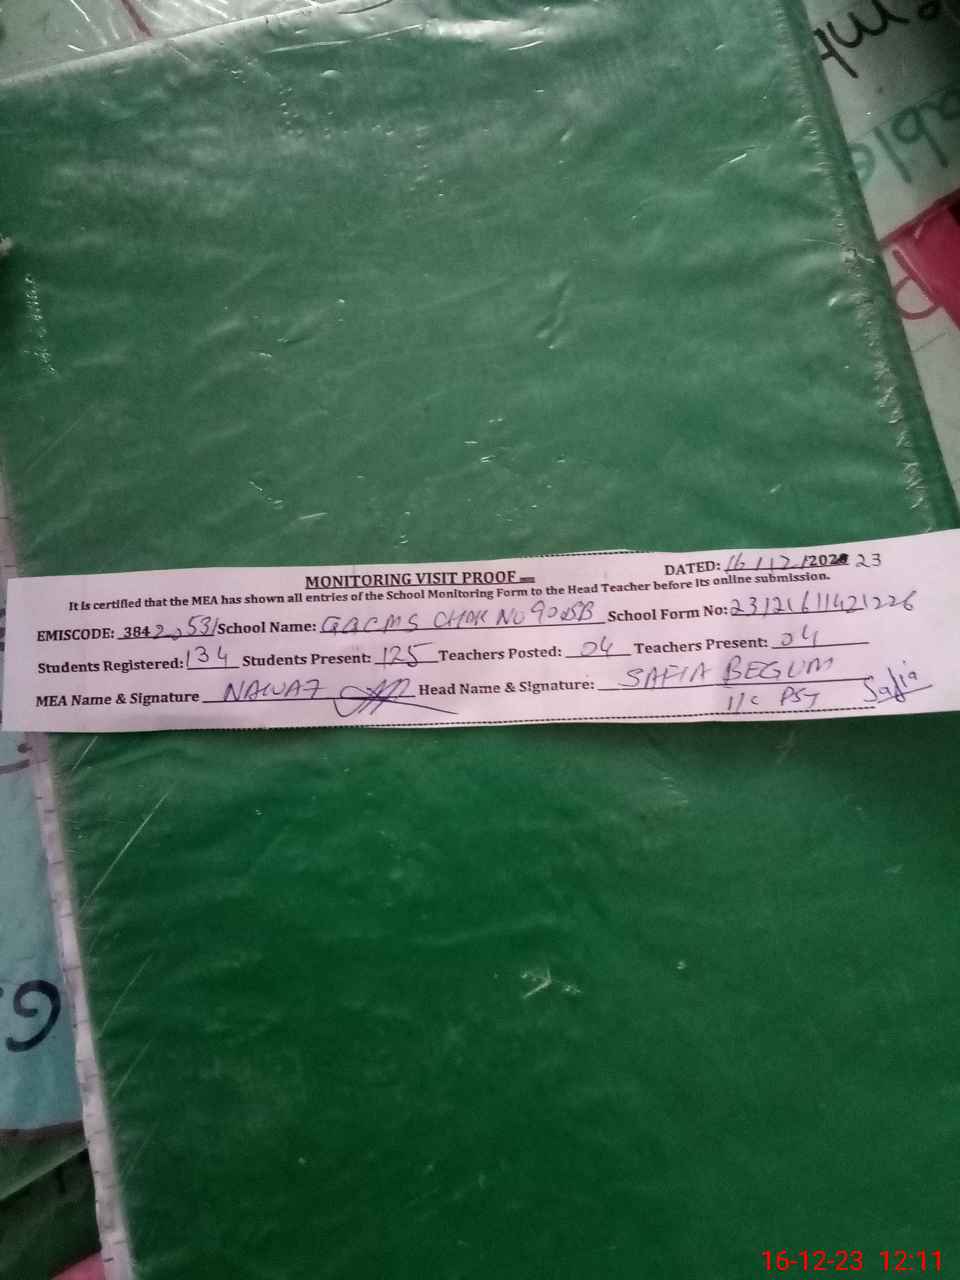 MONITORING VISIT PROOF
DATED: 16/12/2023
It is certified that the MEA has shown all entries of the School Monitoring Form to the Head Teacher before its online submission.
EMISCODE: 384 School Name: GACMS CHAK NO 90 SB School Form No: 23121611421226
Students Registered: 134 Students Present: 125 Teachers Posted: 04 Teachers Present: 04
MEA Name & Signature NAWAZ Head Name & Signature: SAFIA BEGUM
I/C PST Safia
16-12-23 12:11